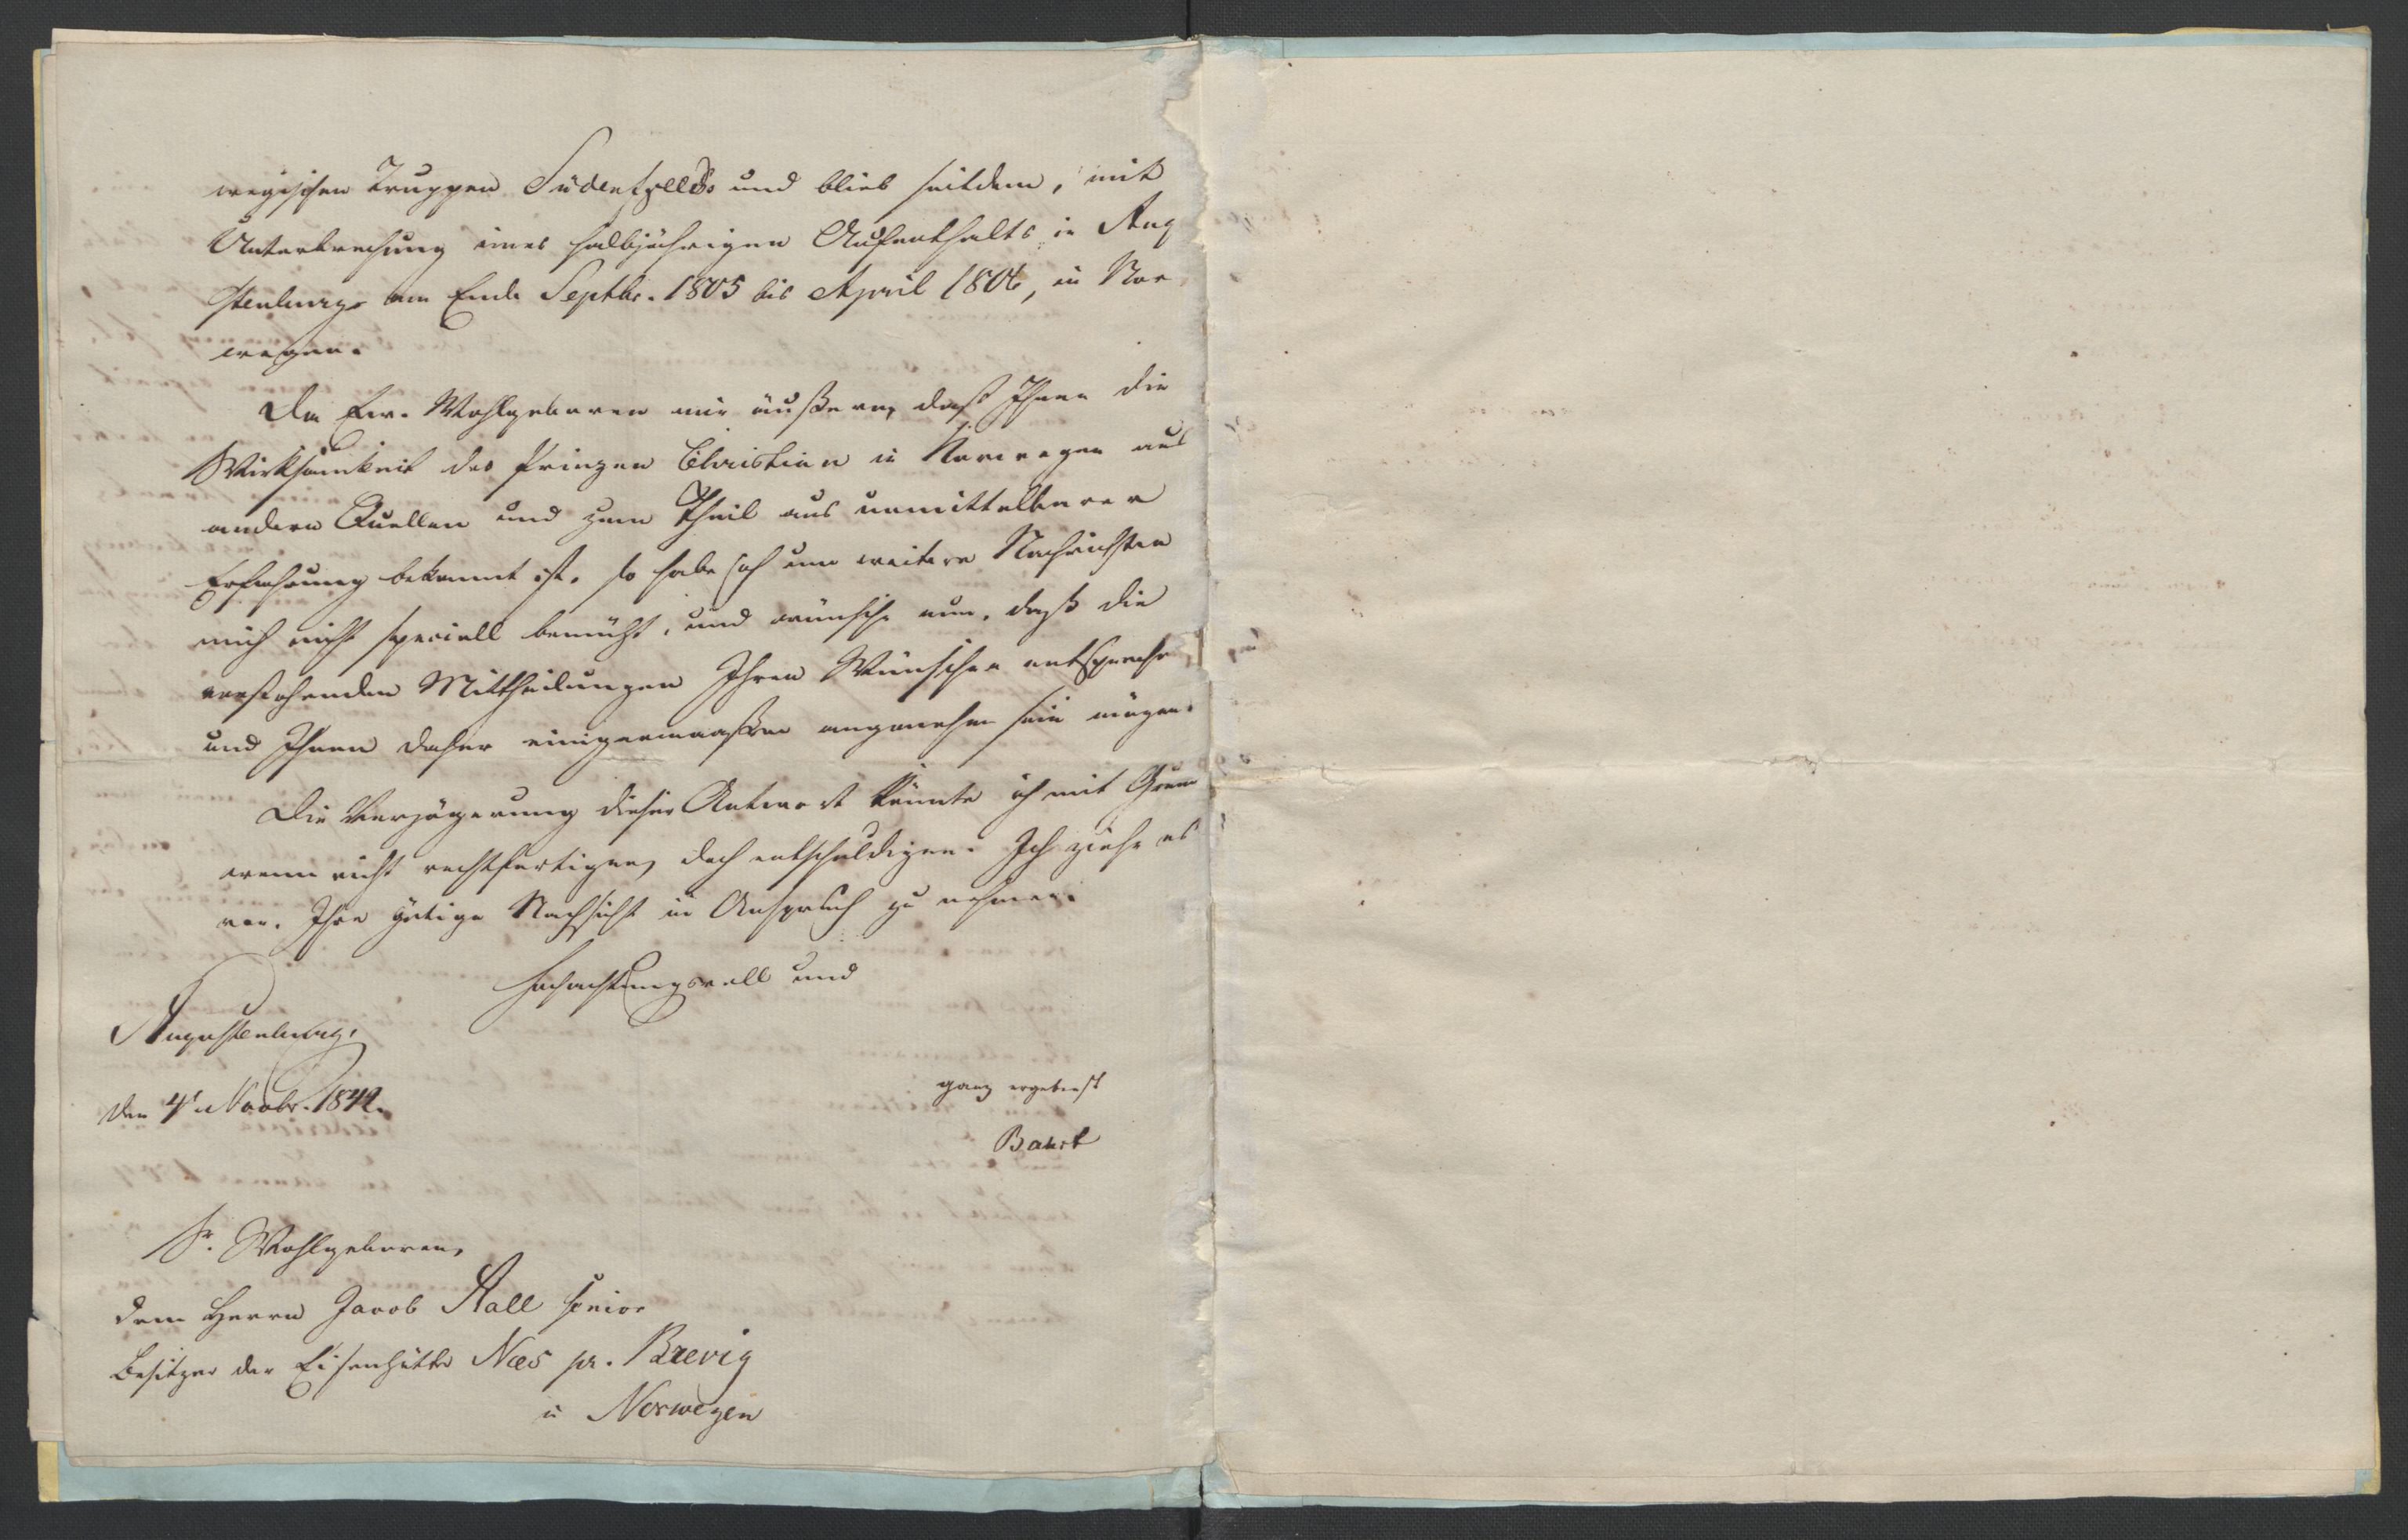 wegischen Truppen Südenfjelds und blieb seitdem, mit
Unterbrechung eines halbjährigen Aufenthalts in Aug
stenburg am Ende Septbr. 1805 bis April 1806, in Nor
wegen.
Da Ew. Wohlgeboren mir äußern, daß Ihnen die
Wirksamkeit des Prinzen Christian in Norwegen aus
andern Quellen und zum Theil aus unmittelbarer
Erfahrung bekannt ist, so habe ich um weitere Nachrichten
mich nicht speciell bemüht, und wünsche nun, daß die
vorstehenden Mittheilungen Ihren Wünschen entspreche
und Ihnen daher einigermaaßen angenehm sein mögen.
Die Verzögerung dieser Antwort könnte ich mit Grun
wenn nicht rechtfertigen, doch entschuldigen. Ich ziehe es
vor, Ihre gütige Nachsicht in Anspruch zu nehmen.
Hochachtungsvoll und
Augustenburg,
den 4t Novbr. 1842.
ganz ergebenst
Bahrt
Sr. Wohlgeboren,
dem Herrn Jacob Aall senior
Besitzer der Eisenhütte Næs pr. Brevig
in Norwegen